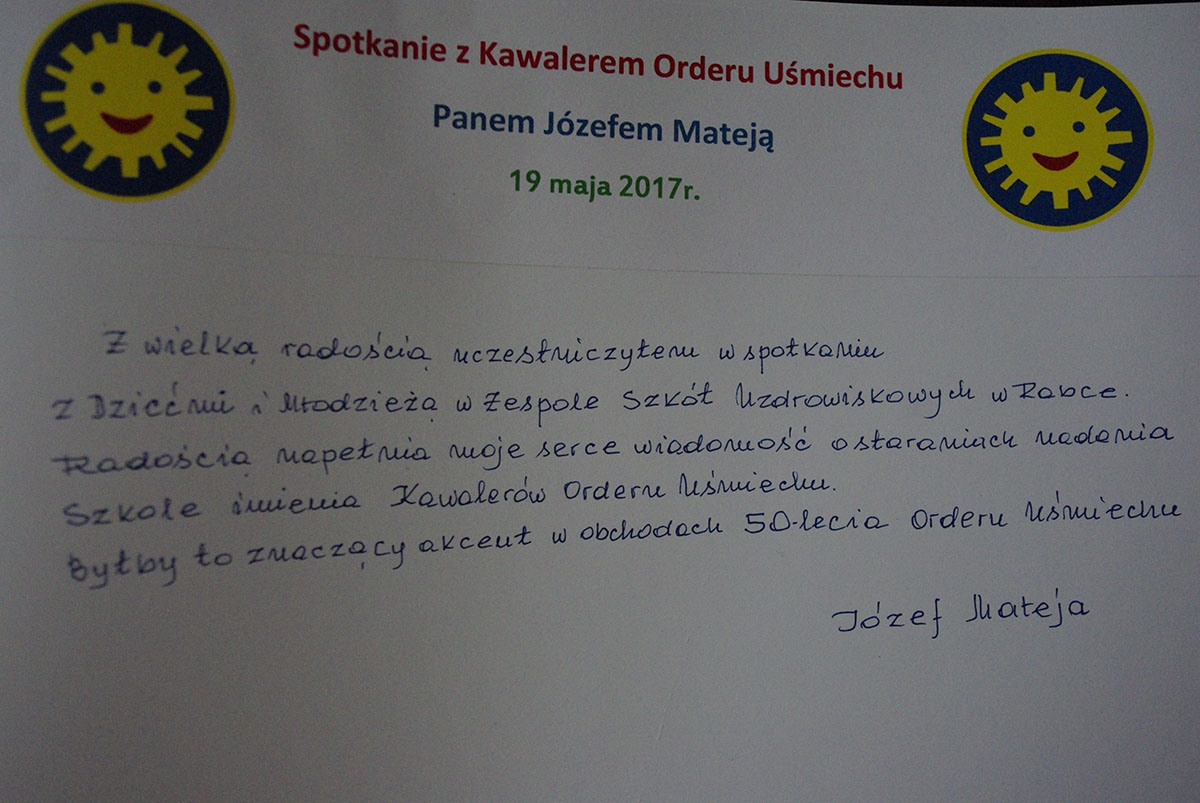 Spotkanie z Kawalerem Orderu Uśmiechu
Panem Józefem Mateją
19 maja 2017r.
Z wielką radością uczestniczyłem w spotkaniu
z Dziećmi i Młodzieżą w Zespole Szkół Uzdrowiskowych w Rabce.
Radością napełnia moje serce wiadomość o staraniach nadania
Szkole imienia Kawalerów Orderu Uśmiechu.
Byłby to znaczący akcent w obchodach 50-lecia Orderu Uśmiechu
Józef Mateja